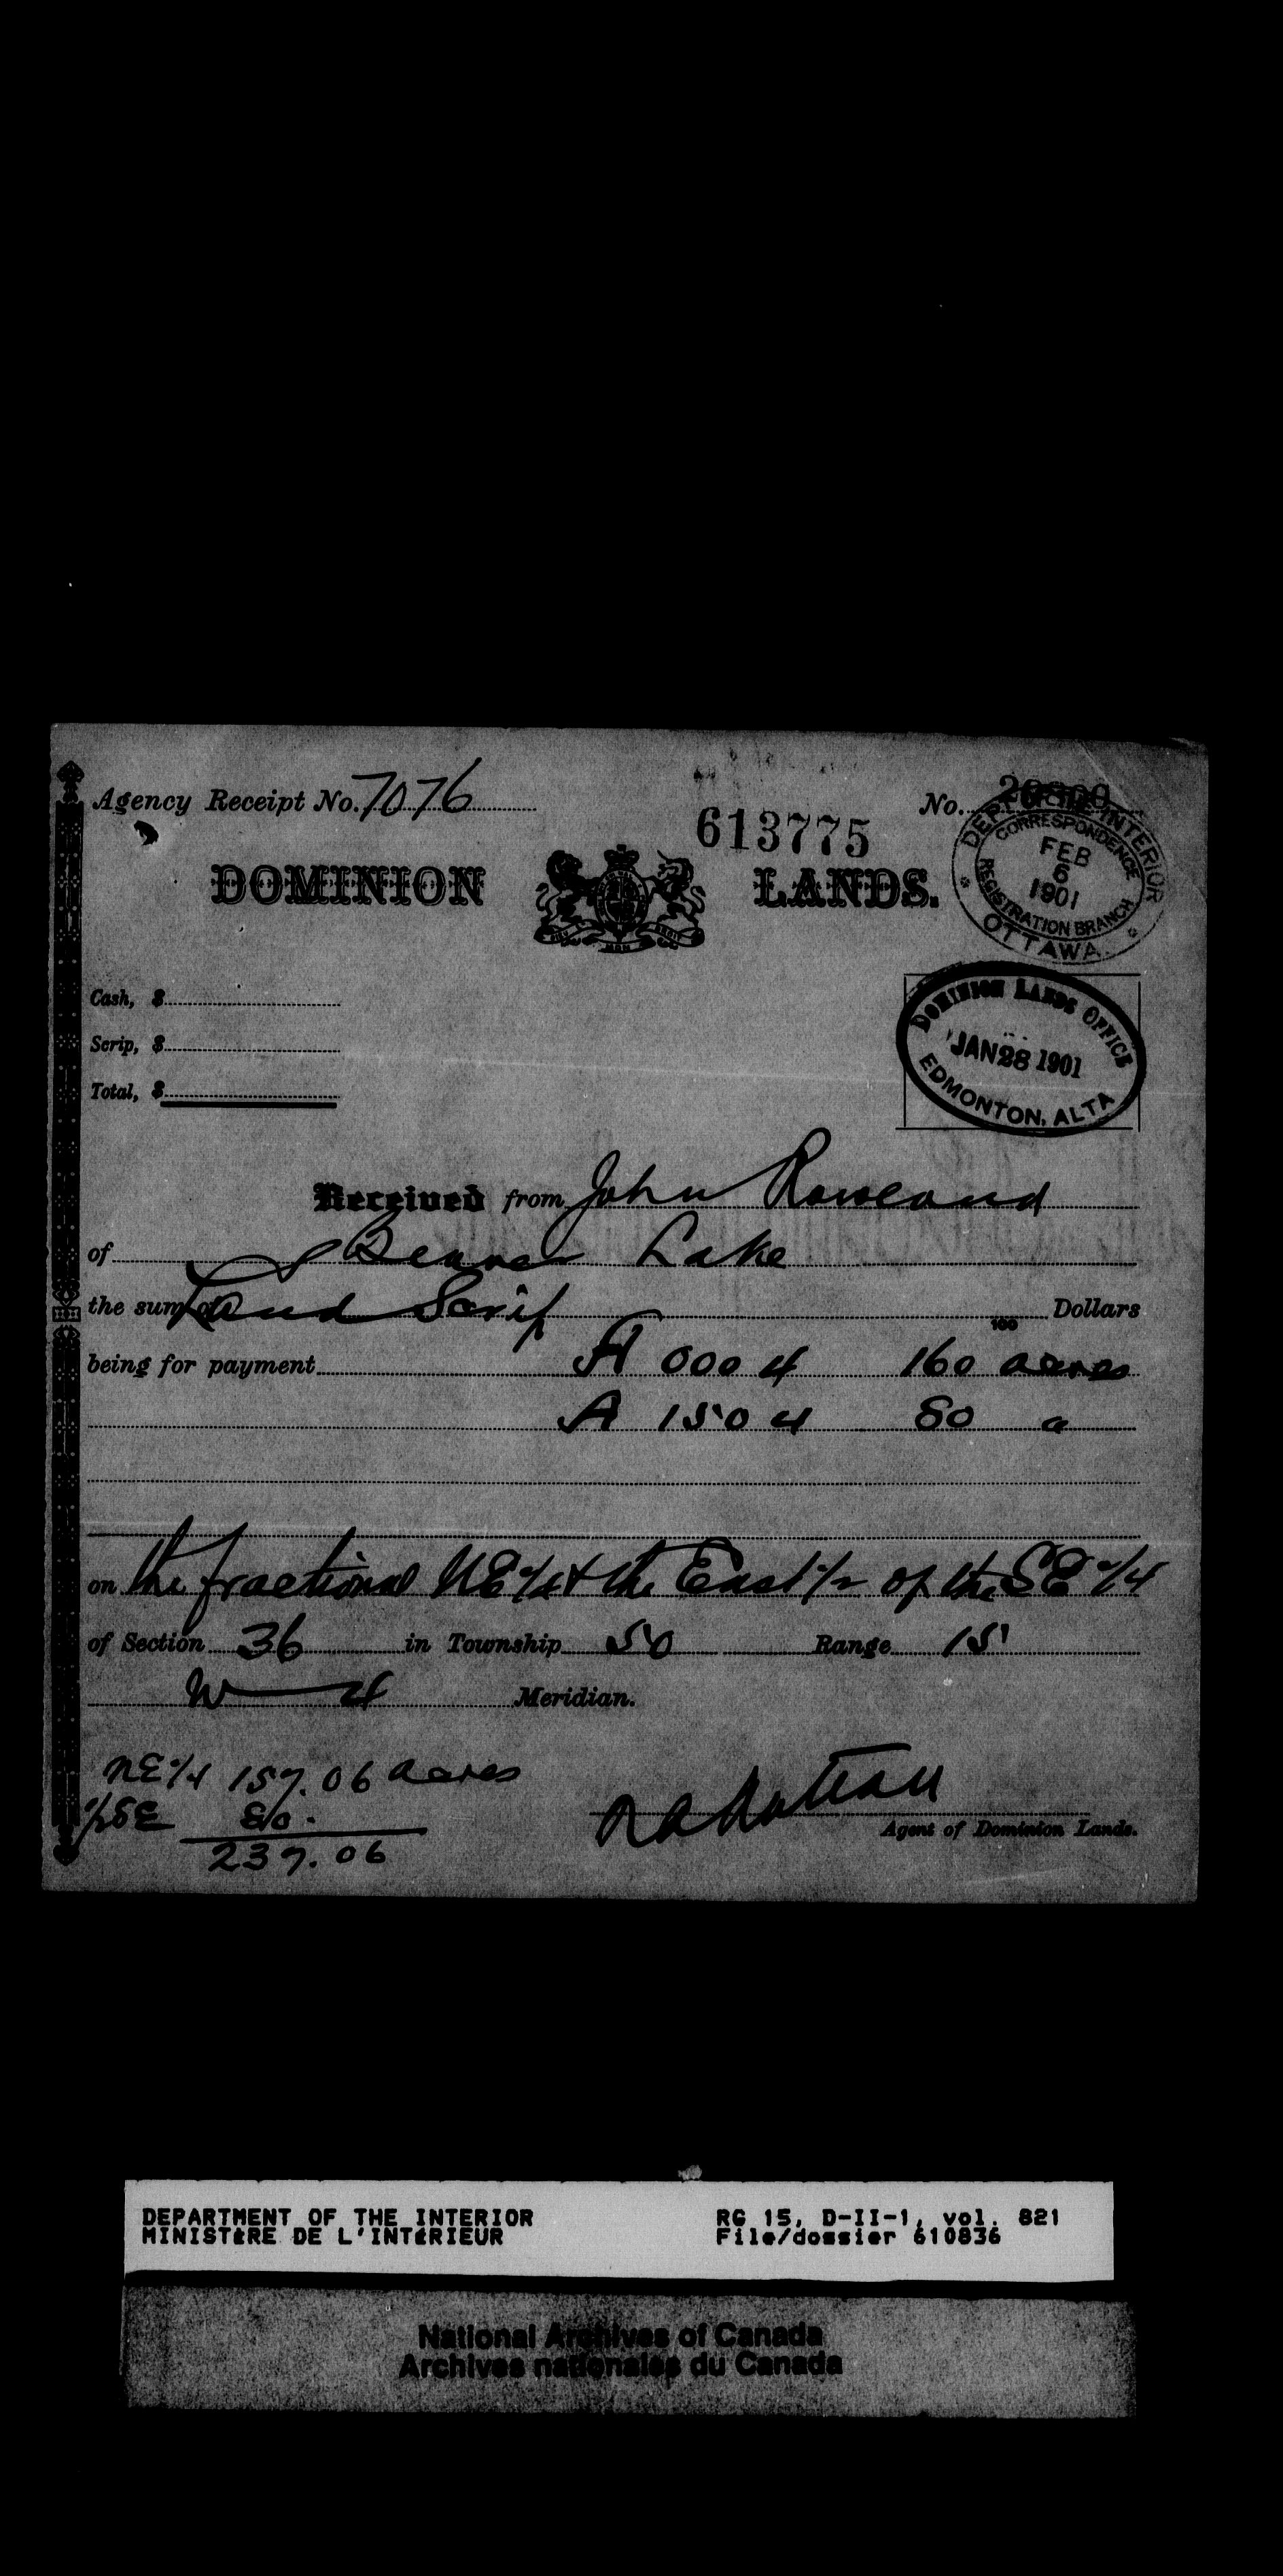 Agency Receipt No. 7076
No.
613775
DEPT. OF THE INTERIOR
CORRESPONDENCE
FEB
6
1901
REGISTRATION BRANCH
OTTAWA.
DOMINION LANDS.
DIEU ET MON DROIT
Cash, $
Scrip, $
Total, $
DOMINION LANDS OFFICE
JAN 28 1901
EDMONTON, ALTA
Received from John Rowland
of Beaver Lake
the sum of Land Scrip Dollars
100
being for payment A 0004 160 acres
A 1504 80 a
on the fractional NE 1/4 & the East 1/2 of the SE 1/4
of Section 36 in Township 50 Range 15
W 4 Meridian.
NE 1/4 157.06 acres
1/2 SE 80.
237.06
Agent of Dominion Lands.
DEPARTMENT OF THE INTERIOR RG 15, D-II-1, vol. 821
MINISTÈRE DE L'INTÉRIEUR File/dossier 610836
National Archives of Canada
Archives nationales du Canada